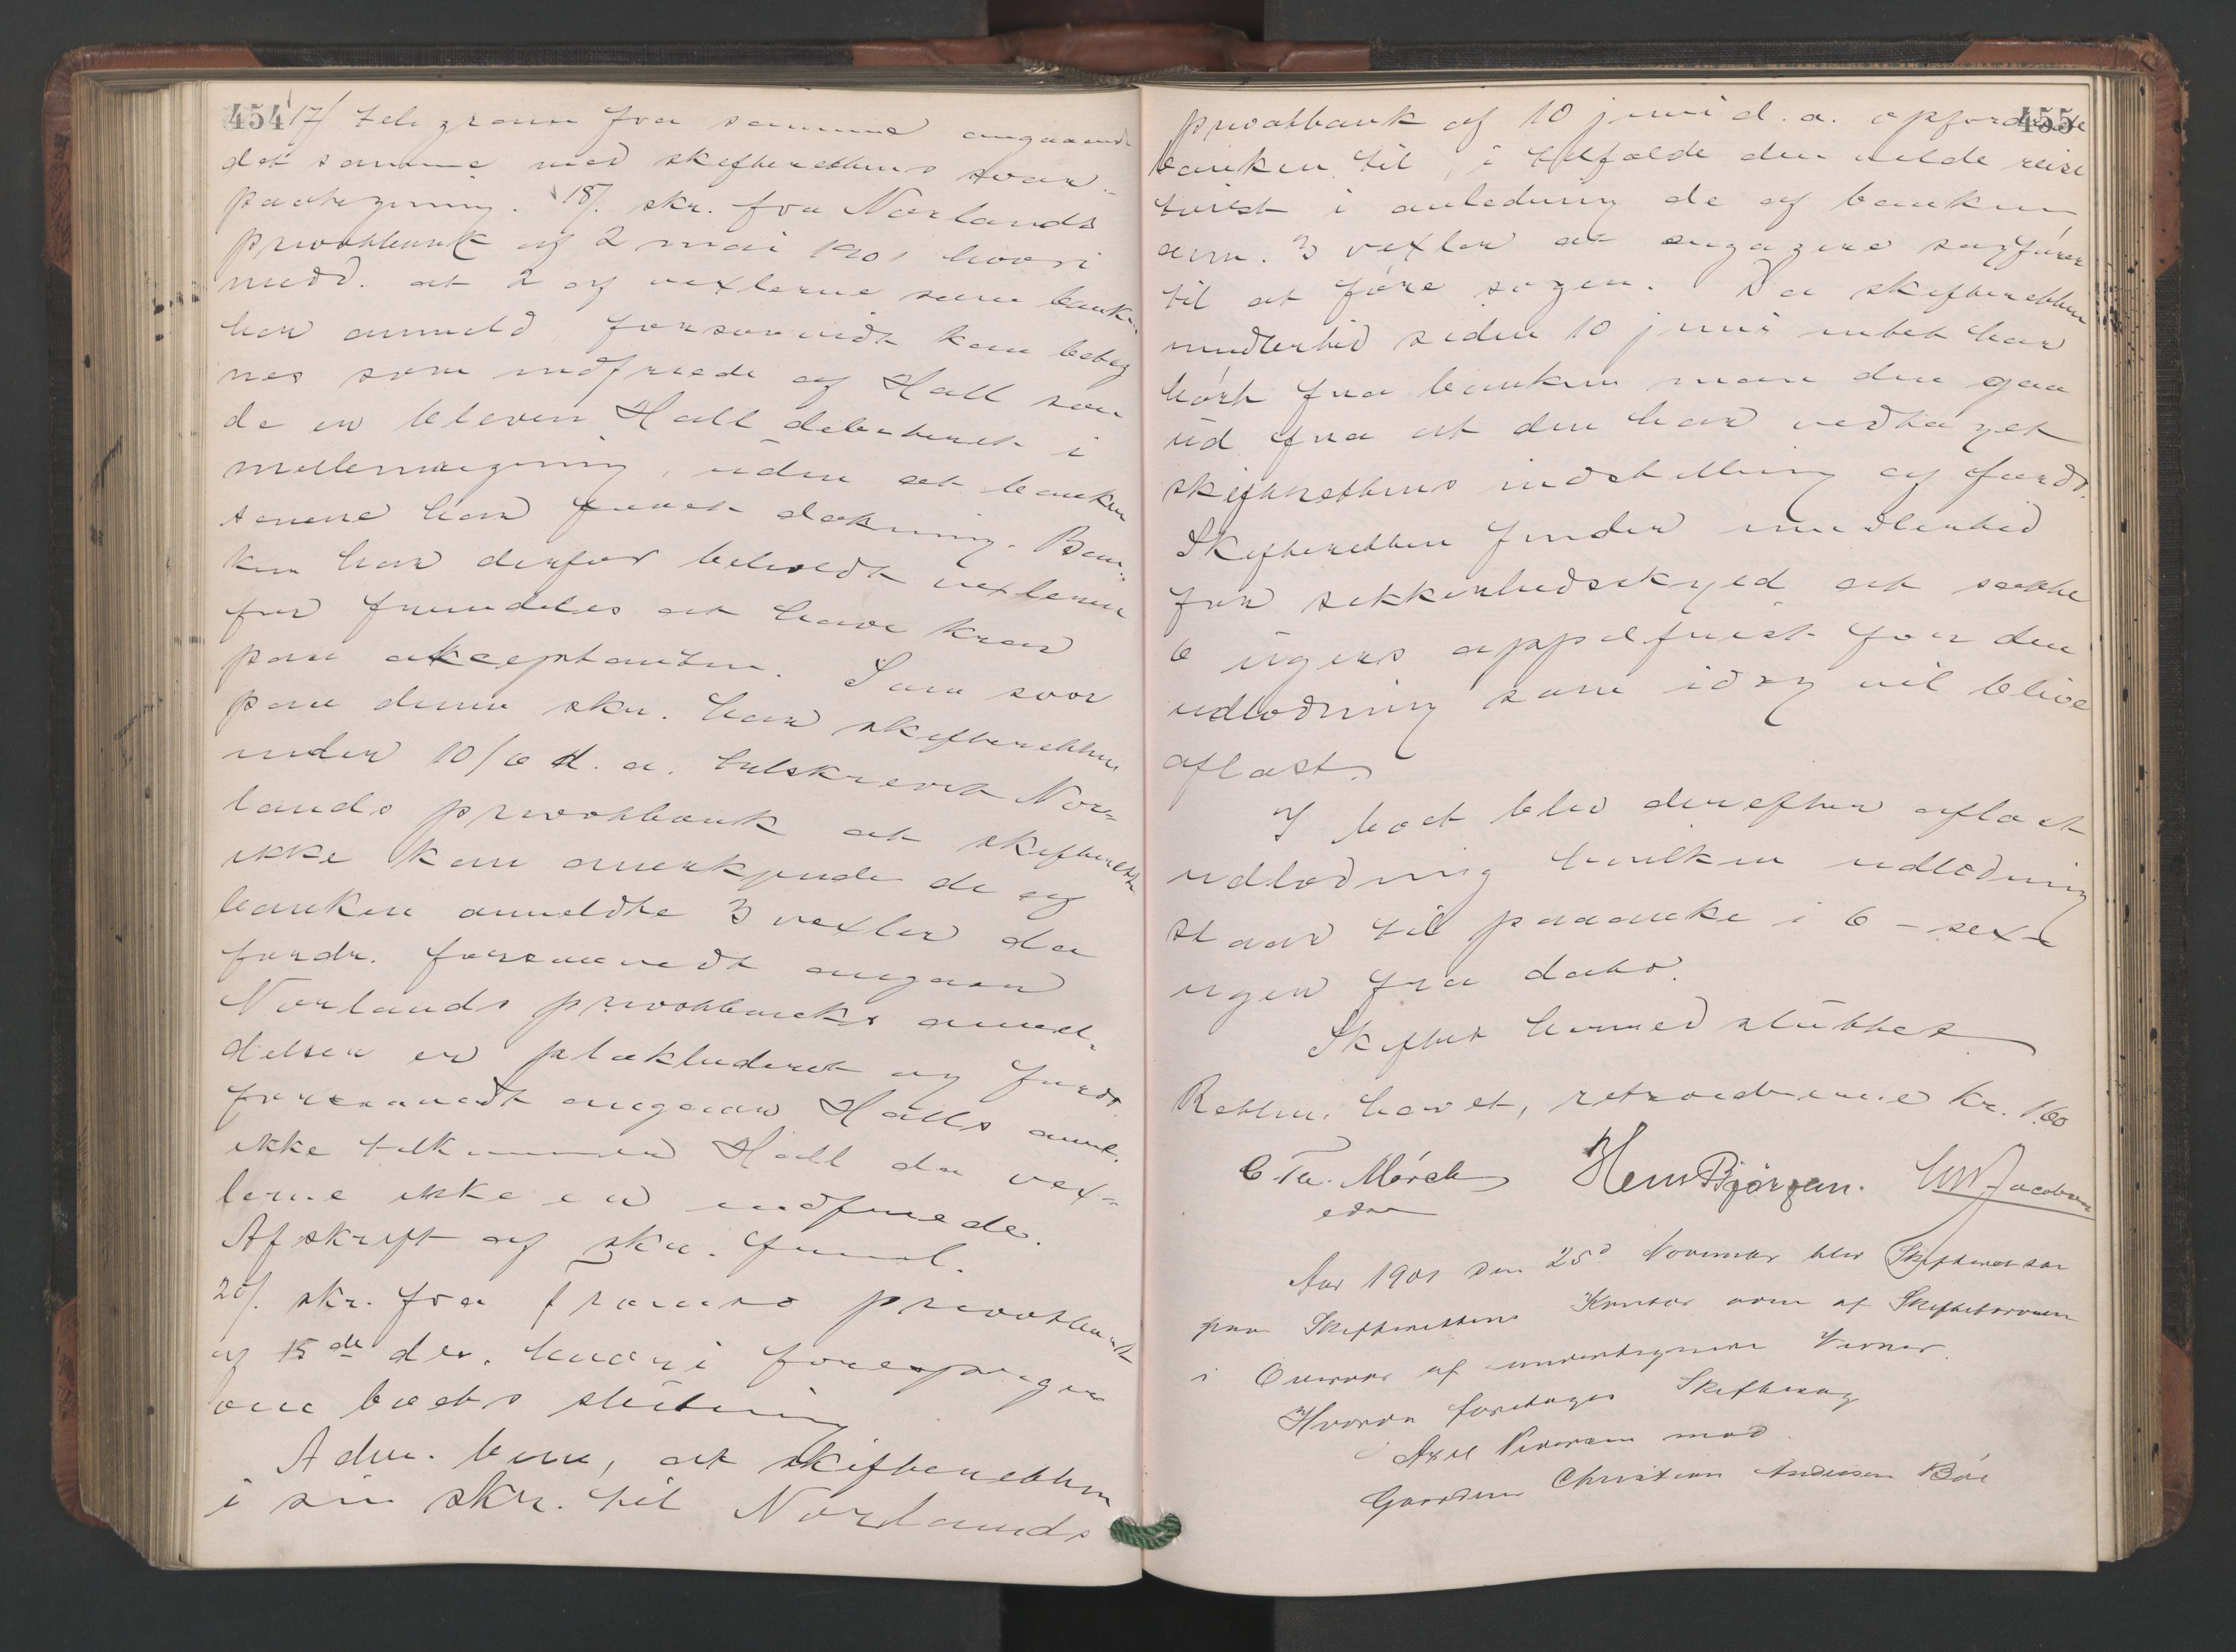 454
17/ telegram fra samme angaaende
det samme med skifterettens svar-
paategning. 18/. skr. fra Norlands
privatbank af 2 mai 1901 hvori
medd. at 2 af vexlerne som banken
har anmeld forsaavidt kan beteg
nes som indfriede af Hall som
de er bleven Hall debeteret i
mellemregning, uden at banken
senere har faaet dækning. Ban-
ken har derfor beholdt vexlerne
for fremdeles at have krav
paa akceptanten. Som svar
paa denne skr. har skifteretten
under 10/6 d. a. tilskrevet Nor-
lands privatbank at skifteretten
ikke kan anerkjende de af
banken anmeldte 3 vexler da
fordr. forsaavidt angaar
Norlands privatbanks anmel-
delsen er plækluderet og fordr.
forsaavidt angaar Halls anml.
ikke tilkommer Hall da vex-
lerne ikke er indfriede.
Afskrift af skr. freml.
20/. skr. fra Tromsø privatbank
af 15de ds. hvori forespørges
om boets slutning
Adm. bem, at skifteretten
i sin skr. til Norlands
455
privatbank af 10 juni d. a. opfordrede
banken til, i tilfælde den vilde reise
tvist i anledning de af banken
anm. 3 vexler at engagere sagfører
til at føre sagen. Da skifteretten
imidlertid siden 10 juni intet har
hørt fra banken maa den gaa
ud fra at den har vedtaget
skifterettens indstilling af fordr.
Skifteretten finder imidlertid
for sikkerhedsskyld at sætte
6 ugers appelfrist for den
udlodning som idag vil blive
aflæst.
I boet blev derefter aflæst
udlodning hvilken udlodning
staar til paaanke i 6 - sex -
uger fra dato.
Skiftet hermed sluttet
Retten hævet, retsvidnerne kr. 1.60
C Th. Mørch
edsv
Hem Bjørgan. Jacobsen
Aar 1901 den 25d November blev Skifteret sat
paa Skifterettens Kontor adm af Skifteforvalteren
i Overvær af undertegnede Vidner.
Hvorda foretages Skiftesag
Axel Pedersen mod
Gaardm Christian Andersen Bøe